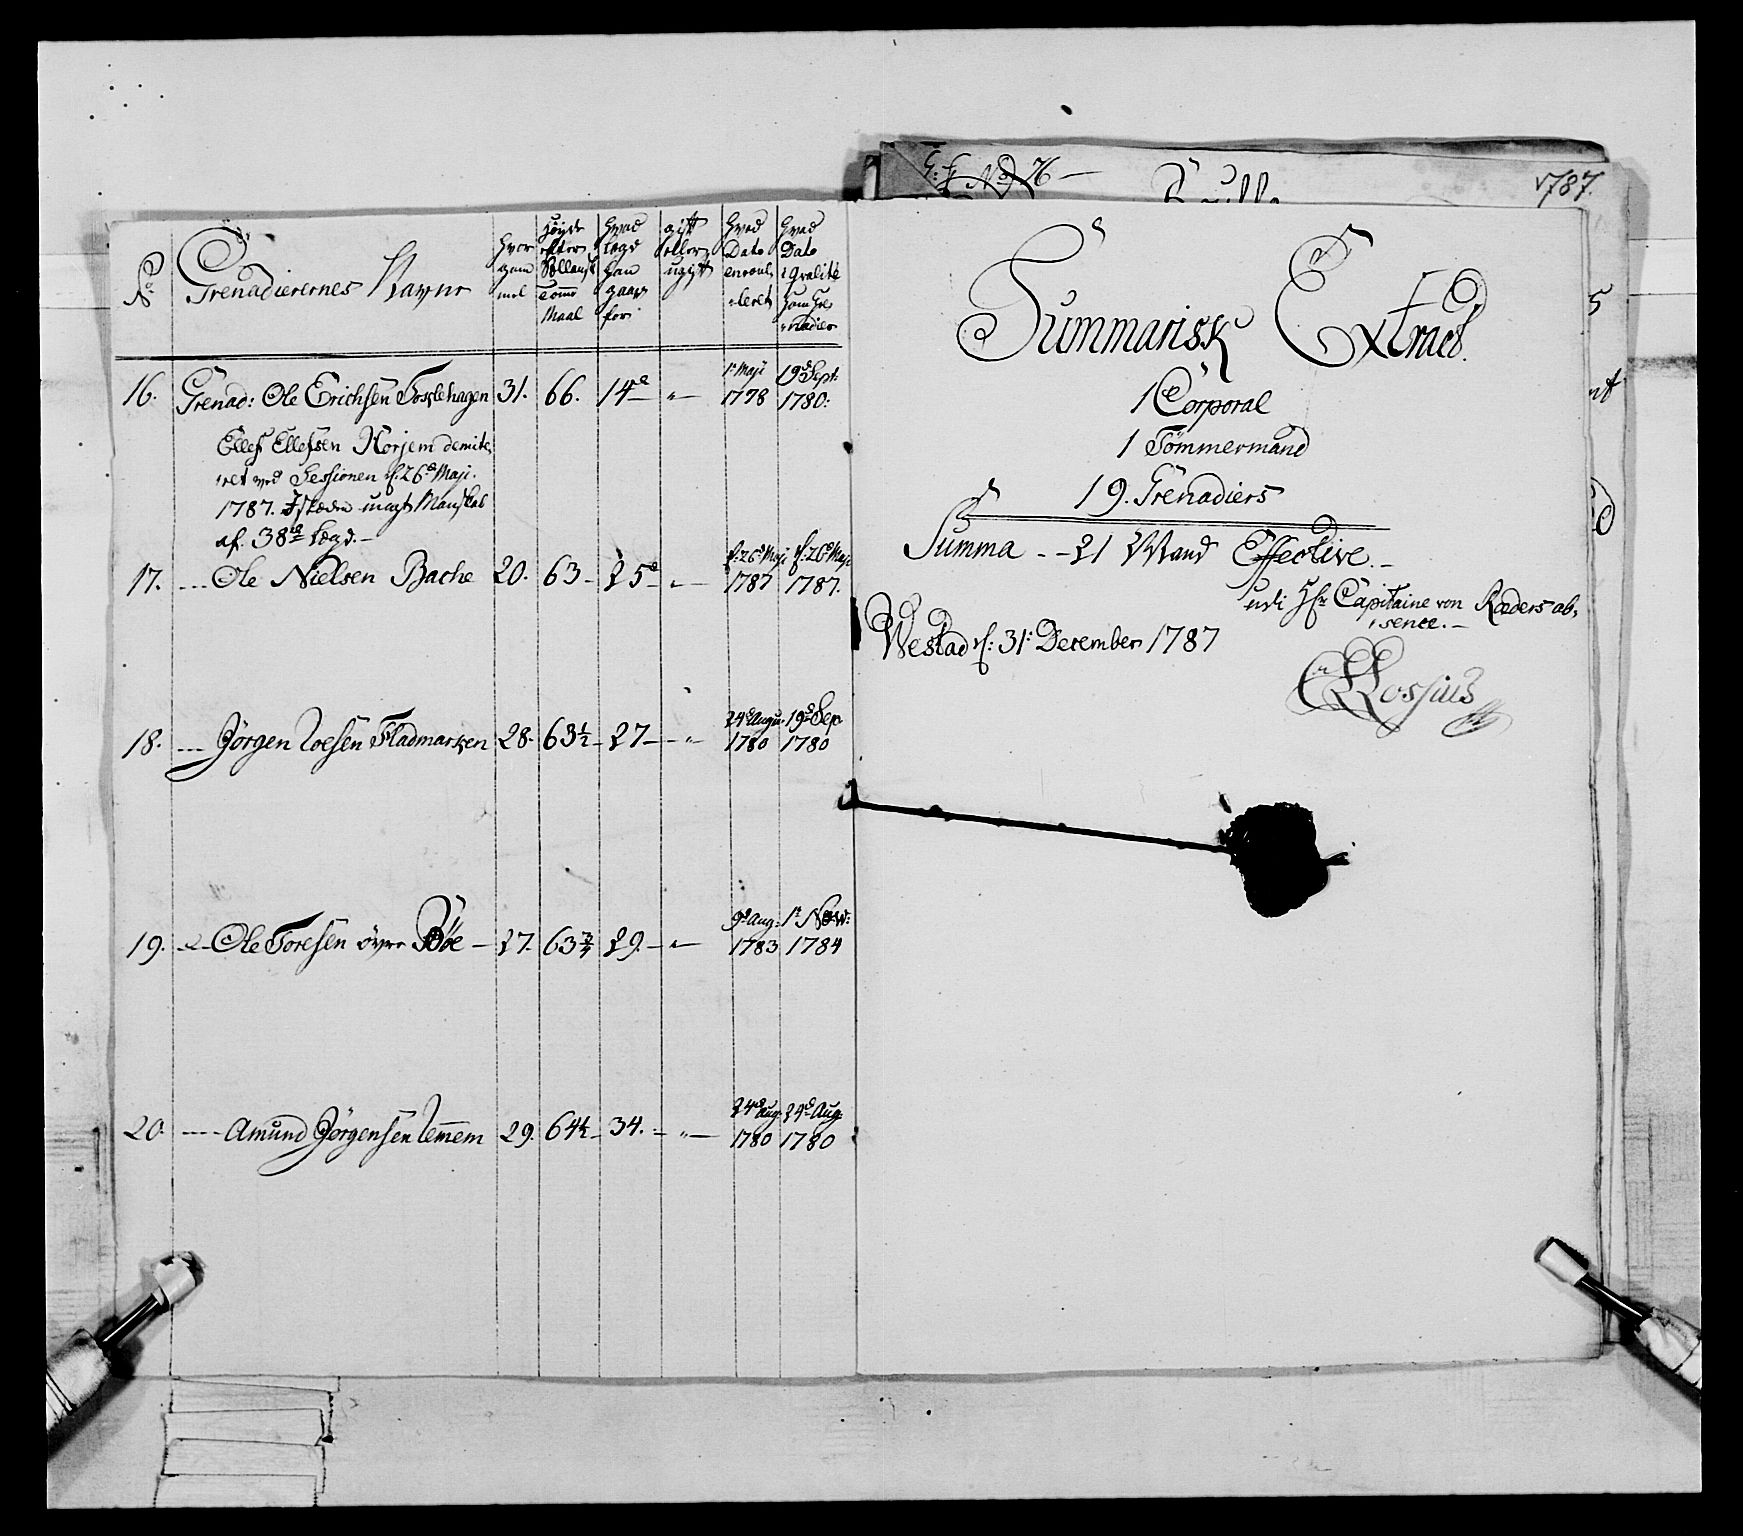 No.
Grenadierernes Navne
Hvor gam̄el
Höyde efter Sollansk Tom̄e Maal
Hvad Lægd han gaar for
gift eller ugift
Hvad Dato enroul-leret
Hvad Dato i Qvalité som Gre-nadier
16. Grenad: Ole Erichsen Foslehagen 31. 66. 14de „— 1te Maji 1778 19de Sept: 1780.
Ellef Ellefsen Norjem demite-
ret ved Sessionen d: 26de Maji
1787. Istæden inragt Manskab
af 38de Lægd.—
17. --- Ole Nielsen Bache 20. 63— 25de „— d: 26de Maji 1787 d: 26de Maji 1787.
18. --- Jörgen Loesen Fladmarken 28. 63½— 27— „— 24de Augu: 1780 19de Sep 1780
19. -- Ole Toresen övre Böe — 27. 63¾ 29.— „— 9de Aug: 1783 1te Now: 1784
20. ---- Amund Jörgensen Lem̄em 29. 64½— 34.— „— 24de Aug: 1780 24de Aug: 1780
No 76—
1787.
Summarisk Extract.
1 Corporal
1 Tömmermand
19. Grenadiers
Summa - - 21 Mand Effective.—
udi Hr Capitaine von Ræders ab-
sence.—
Westad d: 31: December 1787
Lossius